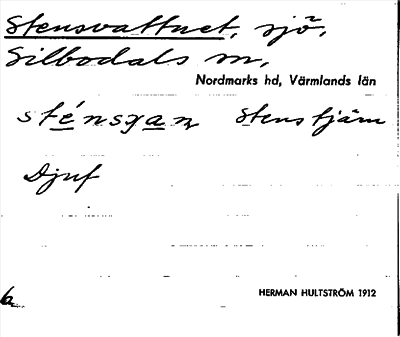 Stensvattnet, sjö,
Silbodals sn,
Nordmarks hd, Värmlands län
sténsȷan Stenstjärn
Djuf
HERMAN HULTSTRÖM 1912